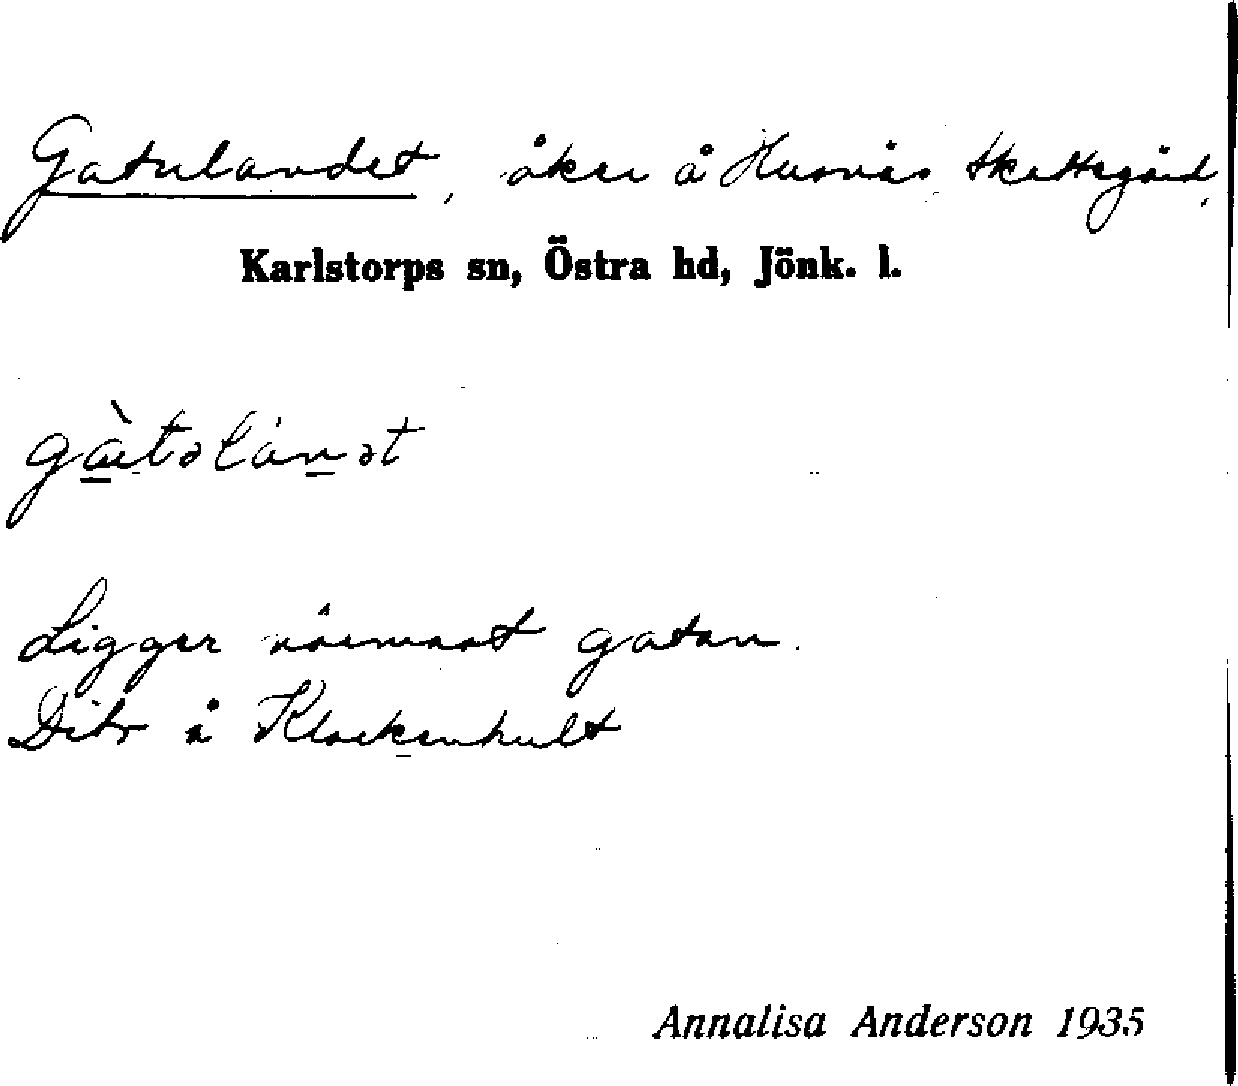 Gatulandet, åker å Husnäs Skattegård,
Karlstorps sn, Östra hd, Jönk. l.
gàtəlánət
Ligger närmast gatan.
Dito å Klockenhult
Annalisa Anderson 1935